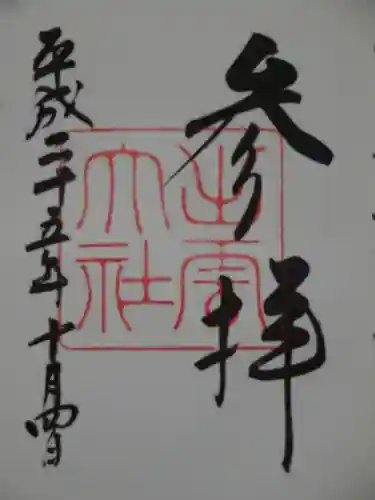 参拝
出雲
大社
平成二十五年十月四日